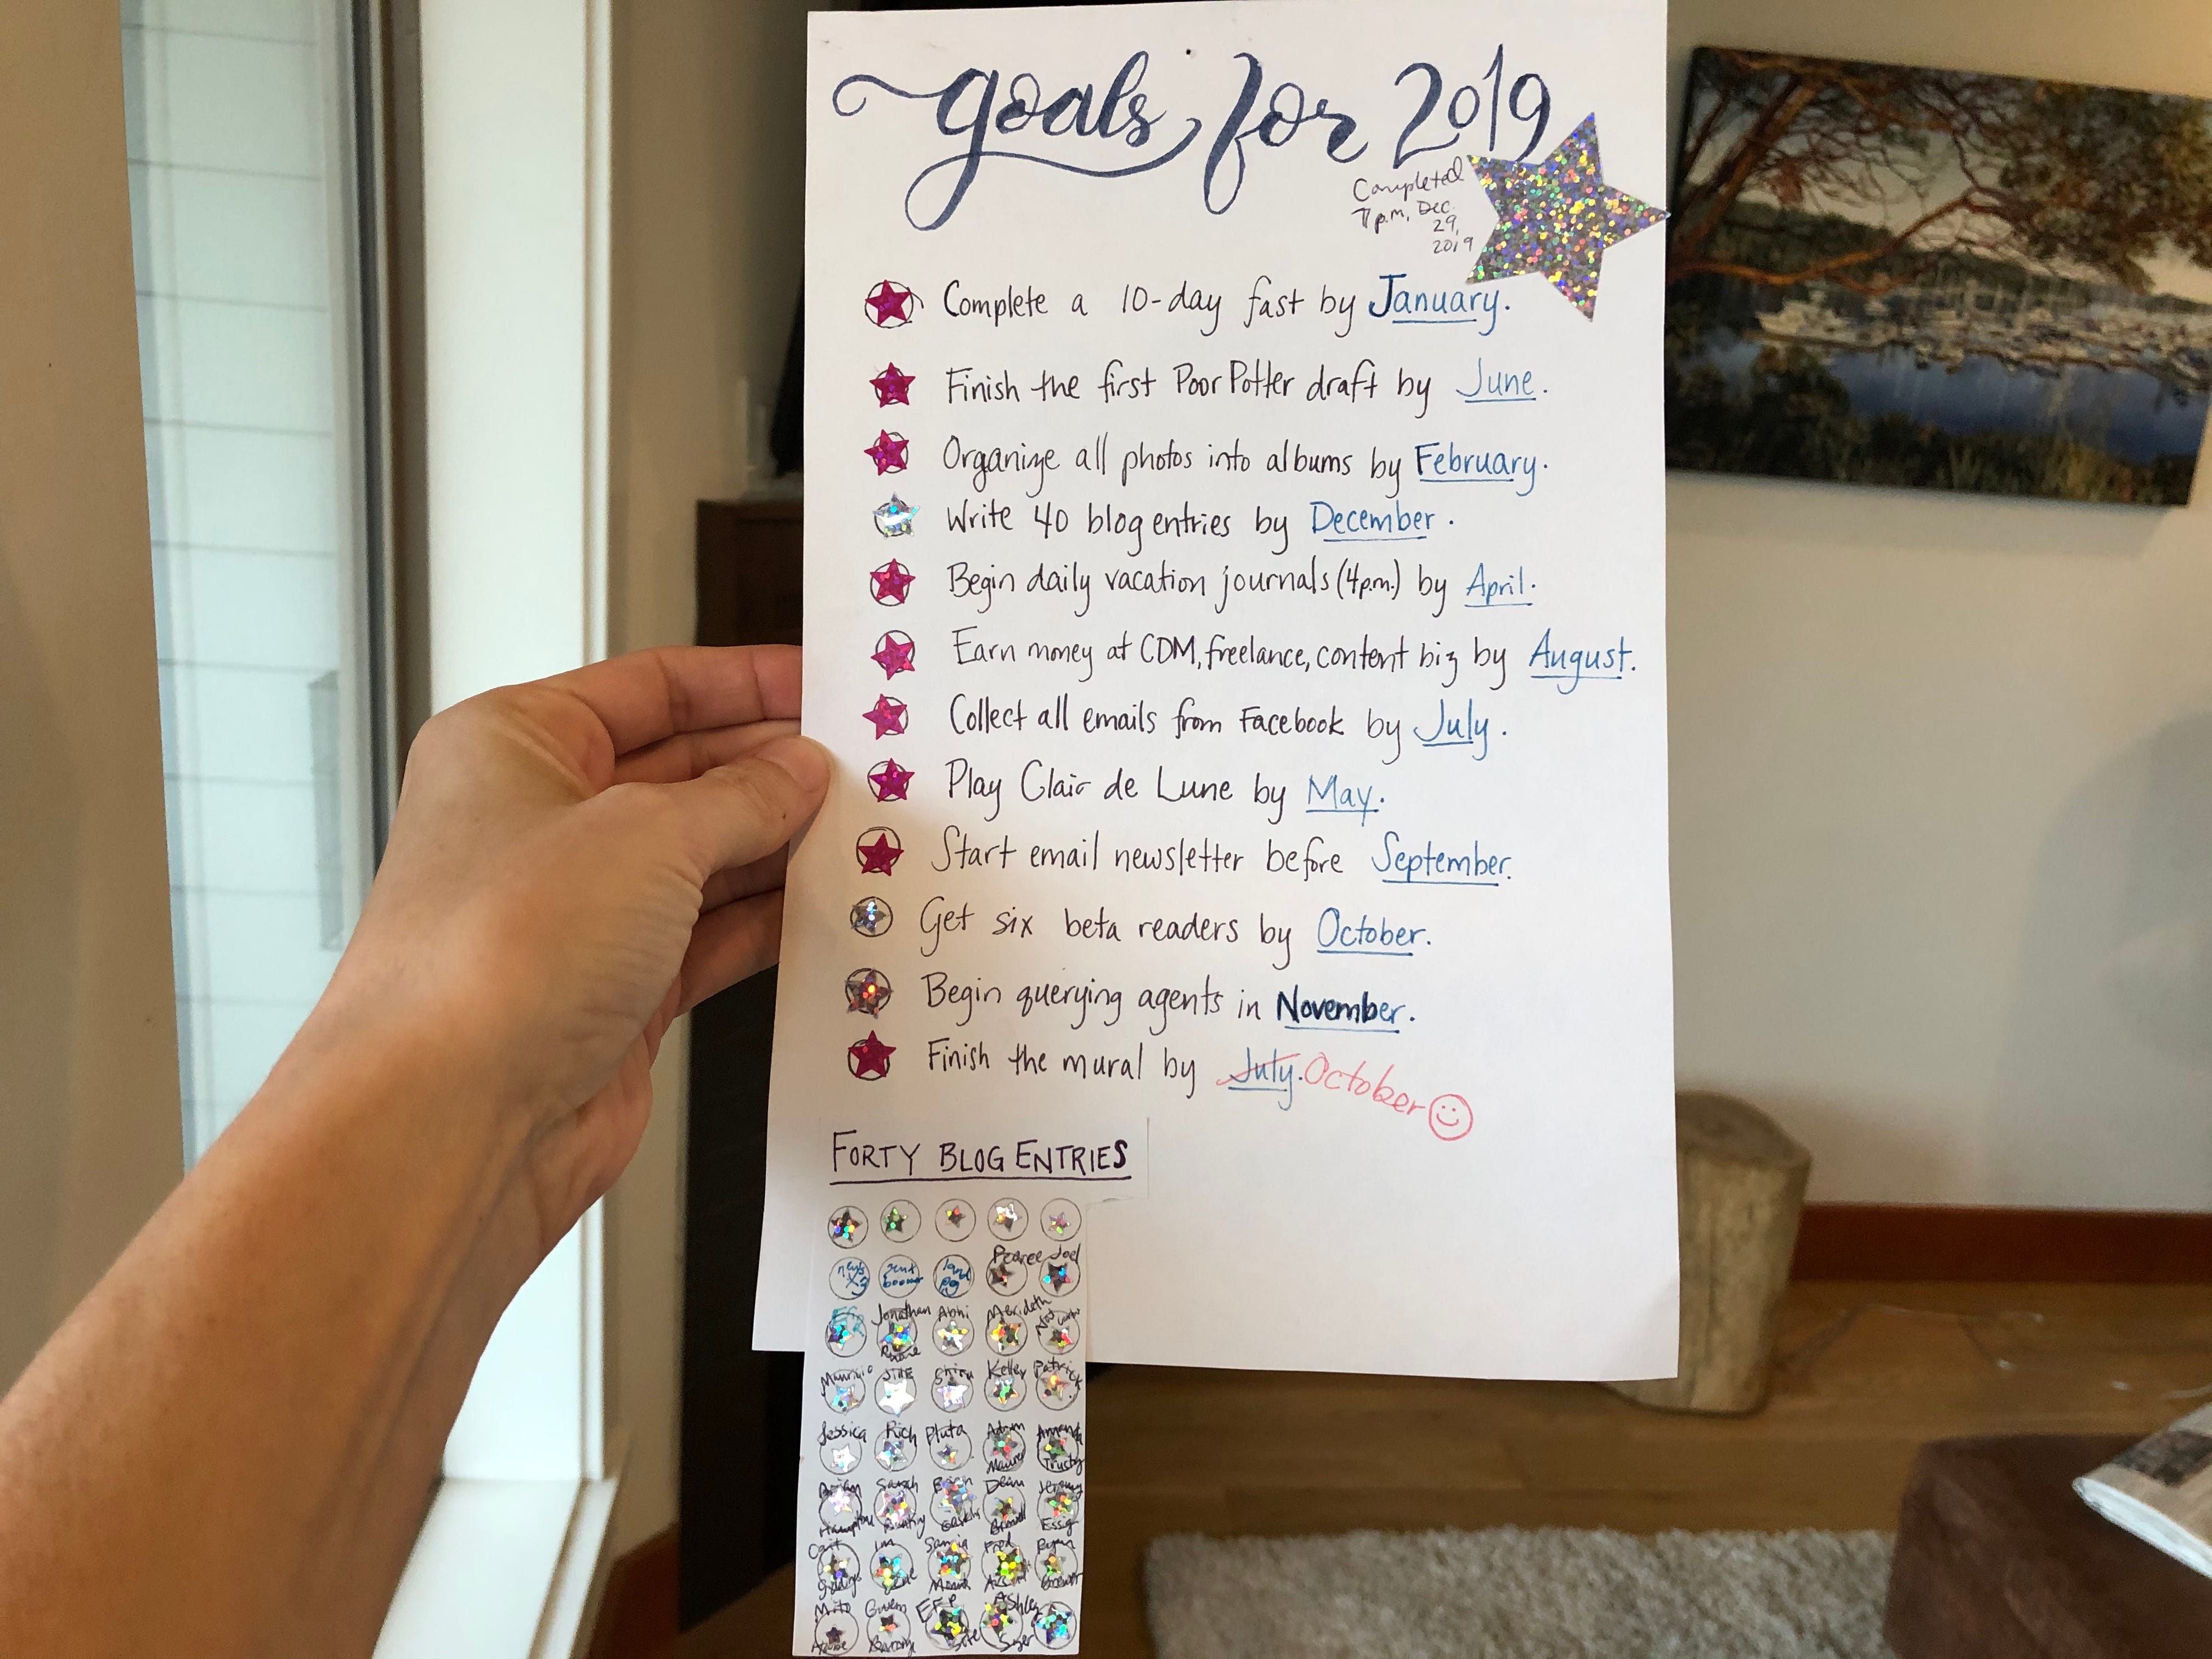 goals for 2019
Completed
7 p.m, Dec.
29,
2019
Complete a 10-day fast by January.
Finish the first Poor Potter draft by June.
Organize all photos into albums by February.
Write 40 blog entries by December.
Begin daily vacation journals (4p.m.) by April.
Earn money at CDM, freelance, content biz by August.
Collect all emails from Facebook by July.
Play Clair de Lune by May.
Start email newsletter before September.
Get six beta readers by October.
Begin querying agents in November.
Finish the mural by July. October
FORTY BLOG ENTRIES
Pearee Joel
Jonathan Abhi Merideth
Mauricio Keller Patrick
Jessica Rich Pluta Adam Amanda
Sarah Brian Dean Jeremy
Hampton Essig
Cait Ian Samia Fred Ryan
Gwen EFP Ashley